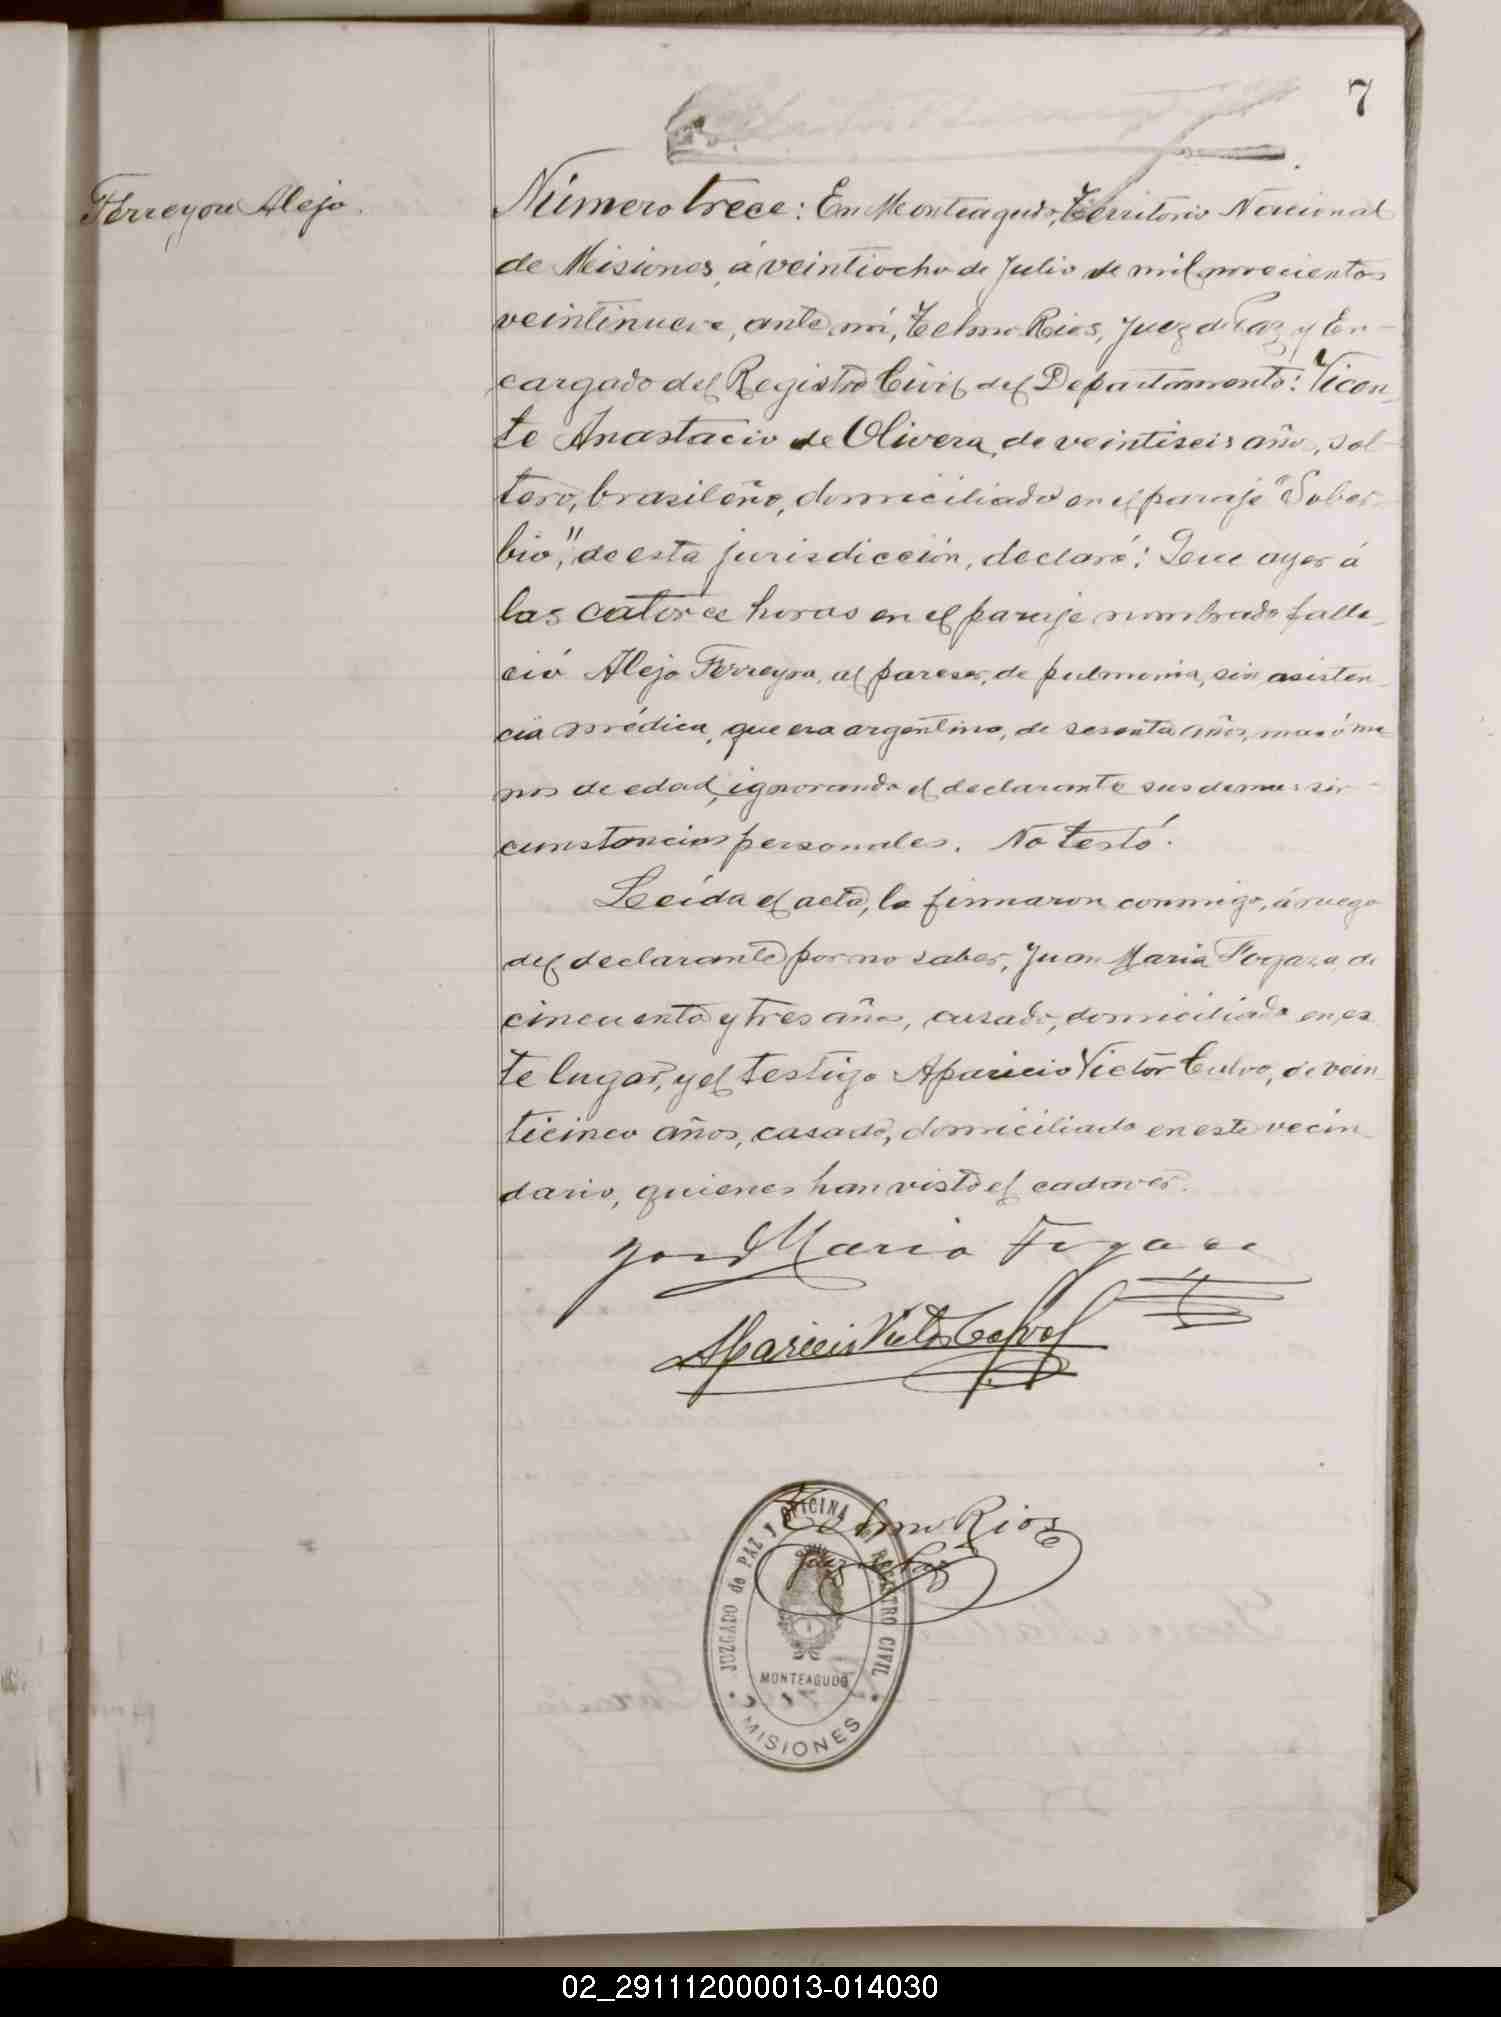 7
Ferreyra Alejo.
Número trece: En Monteagudo, Territorio Nacional
de Misiones, á veintiocho de Julio de mil novecientos
veintinueve, ante mí, Telmo Rios, Juez de Paz y En-
cargado del Registro Civil del Departamento: Vicen-
te Anastacio de Olivera, de veintiseis año, sol-
tero, brasileño, domiciliado en el paraje "Sober-
bio", de esta jurisdicción, declaró: Que ayer á
las catorce horas en el paraje nombrado falle-
ció Alejo Ferreyra, al pareser, de pulmonia, sin asisten-
cia médica, que era argentino, de sesenta años, mas ó me-
nos de edad, ignorando el declarante sus demas sir-
cunstancias personales. No testó.
Leída el acta, la firmaron conmigo, á ruego
del declarante por no saber, Juan Maria Fogaza, de
cincuenta y tres años, casado, domiciliado en es
te lugar, y el testigo Aparicio Victor Calvo, de vein-
ticinco años, casado, domiciliado en este vecin-
dario, quienes han visto el cadaver.
Maria
Aparicio Victor Calvo
Telmo Rios
Juez de Paz
JUZGADO de PAZ Y OFICINA del REGISTRO CIVIL
MONTEAGUDO
MISIONES
02_291112000013-014030